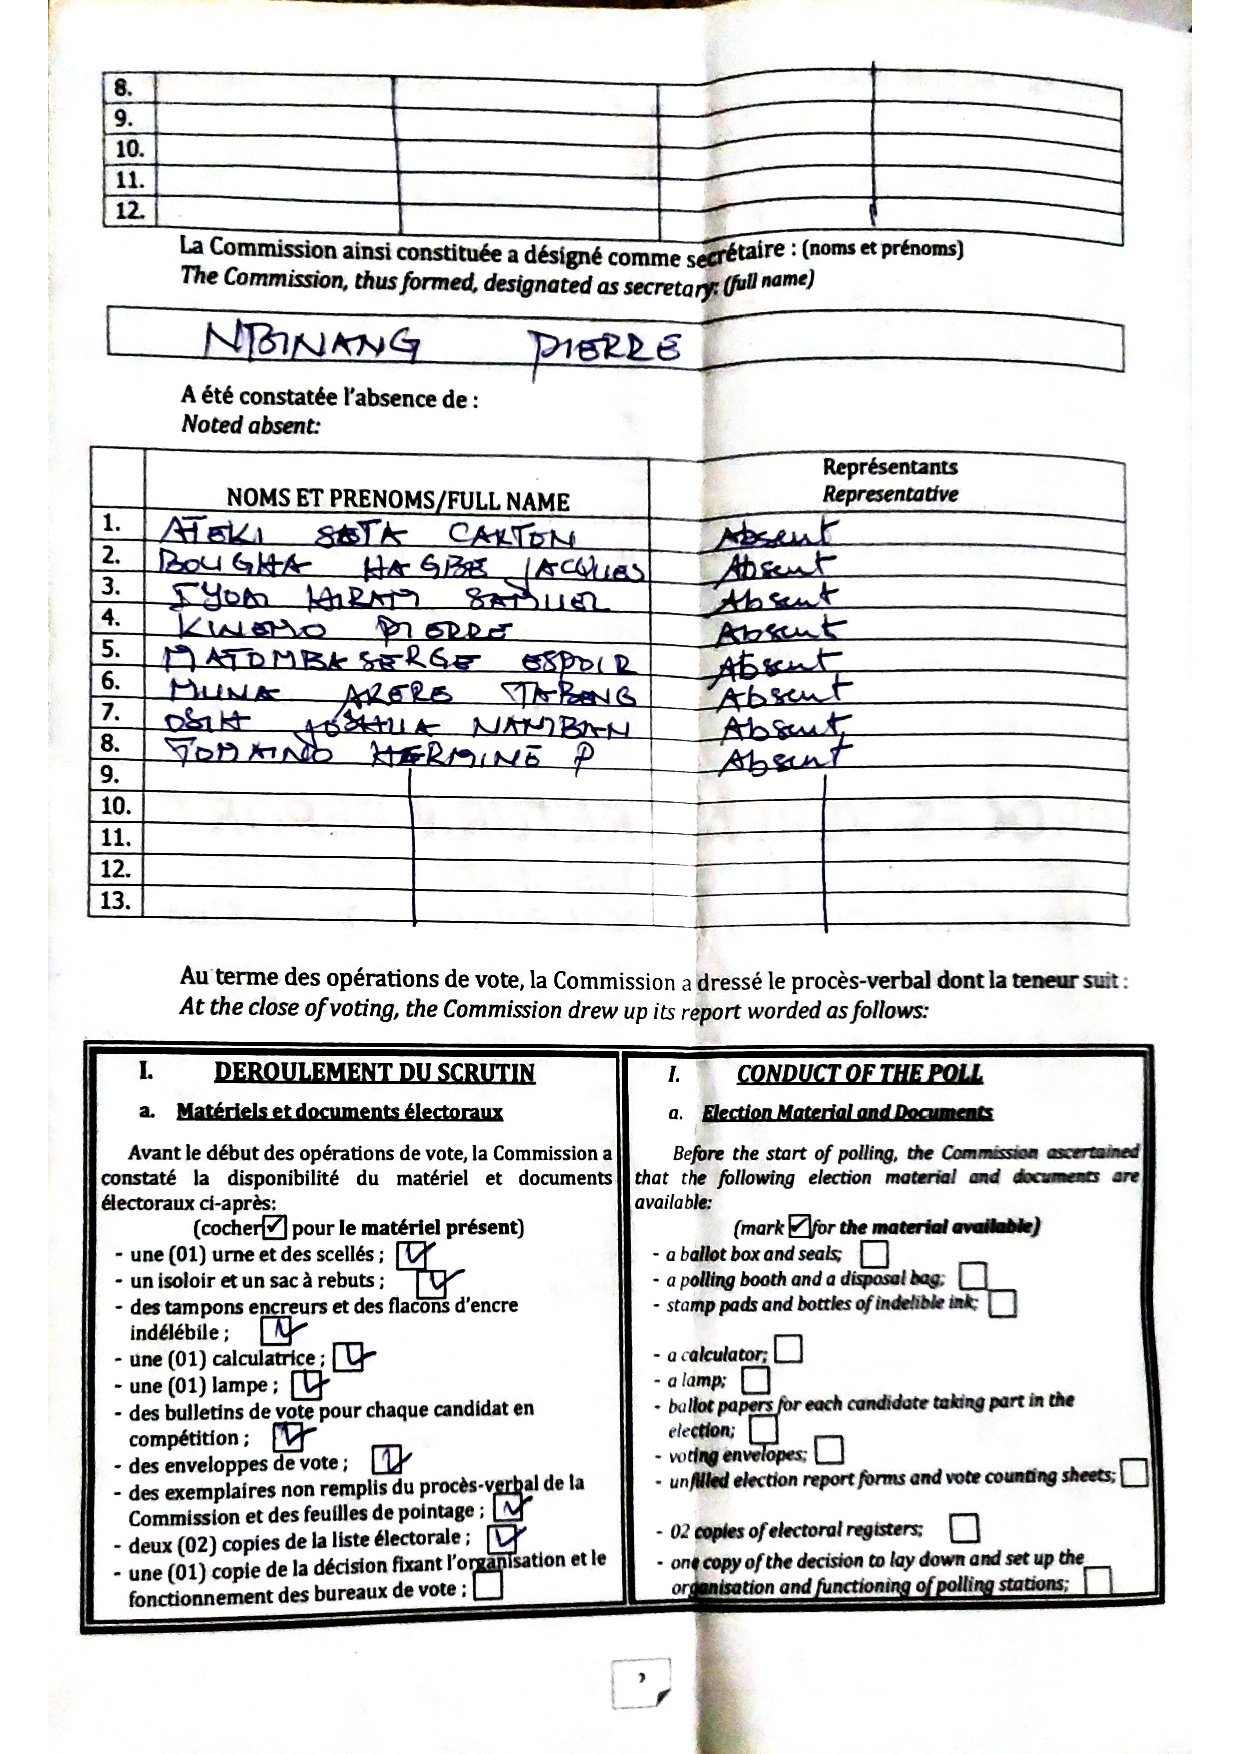 8.
9.
10.
11.
12.
La Commission ainsi constituée a désigné comme secrétaire : (noms et prénoms)
The Commission, thus formed, designated as secretary: (full name)
PIERRE
A été constatée l'absence de :
Noted absent:
NOMS ET PRENOMS/FULL NAME
Représentants
Representative
1. ATEKI SETA CAXTON Absent
2. BOUGHA HAGBE JACQUES Absent
3. IYODI HIRAM SAMUEL Absent
4. PIERRE Absent
5. MATOMBA SERGE ESPOIR Absent
6. MUNA AKERE TABENG Absent
7. OSIH JOSHUA NAMBAN Absent
8. TOMAINO HERMINE P Absent
9.
10.
11.
12.
13.
Au terme des opérations de vote, la Commission a dressé le procès-verbal dont la teneur suit :
At the close of voting, the Commission drew up its report worded as follows:
I. DEROULEMENT DU SCRUTIN
a. Matériels et documents électoraux
Avant le début des opérations de vote, la Commission a
constaté la disponibilité du matériel et documents
électoraux ci-après:
(cocher ☑ pour le matériel présent)
- une (01) urne et des scellés ; ☑
- un isoloir et un sac à rebuts ; ☑
- des tampons encreurs et des flacons d'encre
indélébile ; ☑
- une (01) calculatrice ; ☑
- une (01) lampe ; ☑
- des bulletins de vote pour chaque candidat en
compétition ; ☑
- des enveloppes de vote ; ☑
- des exemplaires non remplis du procès-verbal de la
Commission et des feuilles de pointage ; ☑
- deux (02) copies de la liste électorale ; ☑
- une (01) copie de la décision fixant l'organisation et le
fonctionnement des bureaux de vote ; ☐
I. CONDUCT OF THE POLL
a. Election Material and Documents
Before the start of polling, the Commission ascertained
that the following election material and documents are
available:
(mark ☑ for the material available)
- a ballot box and seals; ☐
- a polling booth and a disposal bag; ☐
- stamp pads and bottles of indelible ink; ☐
- a calculator; ☐
- a lamp; ☐
- ballot papers for each candidate taking part in the
election; ☐
- voting envelopes; ☐
- unfilled election report forms and vote counting sheets; ☐
- 02 copies of electoral registers; ☐
- one copy of the decision to lay down and set up the
organisation and functioning of polling stations; ☐